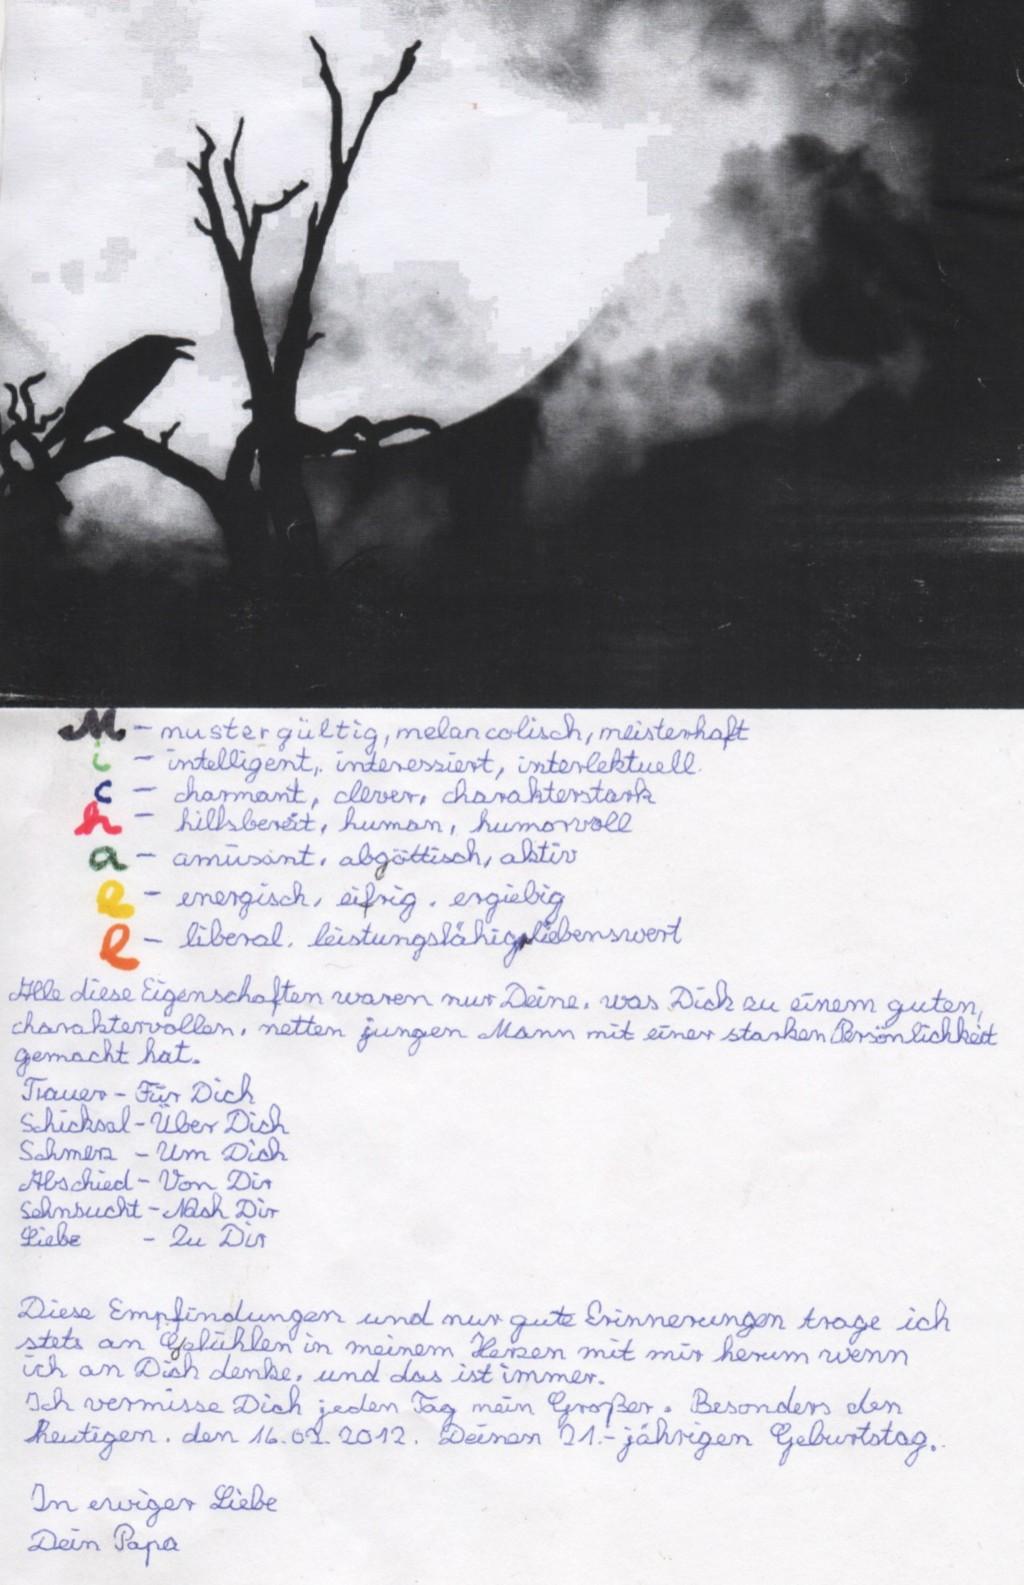 M - mustergültig, melancolisch, meisterhaft
i - intelligent, interessiert, interlektuell.
c - charmant, clever, charakterstark
h - hillsbereit, human, humorvoll
a - amüsant, abgöttisch, aktiv
e - energisch, eifrig, ergiebig
l - liberal, leistungsfähig, liebenswert
Alle diese Eigenschaften waren nur Deine, was Dich zu einem guten,
charaktervollen, netten jungen Mann mit einer starken Persönlichkeit
gemacht hat.
Trauer - Für Dich
Schicksal - Über Dich
Schmerz - Um Dich
Abschied - Von Dir
Sehnsucht - Nach Dir
Liebe - Zu Dir
Diese Empfindungen und nur gute Erinnerungen trage ich
stets an Gefühlen in meinem Herzen mit mir herum wenn
ich an Dich denke, und das ist immer.
Ich vermisse Dich jeden Tag mein Großer. Besonders den
heutigen. den 2012. Deinen 21.-jährigen Geburtstag.
In ewiger Liebe
Dein Papa